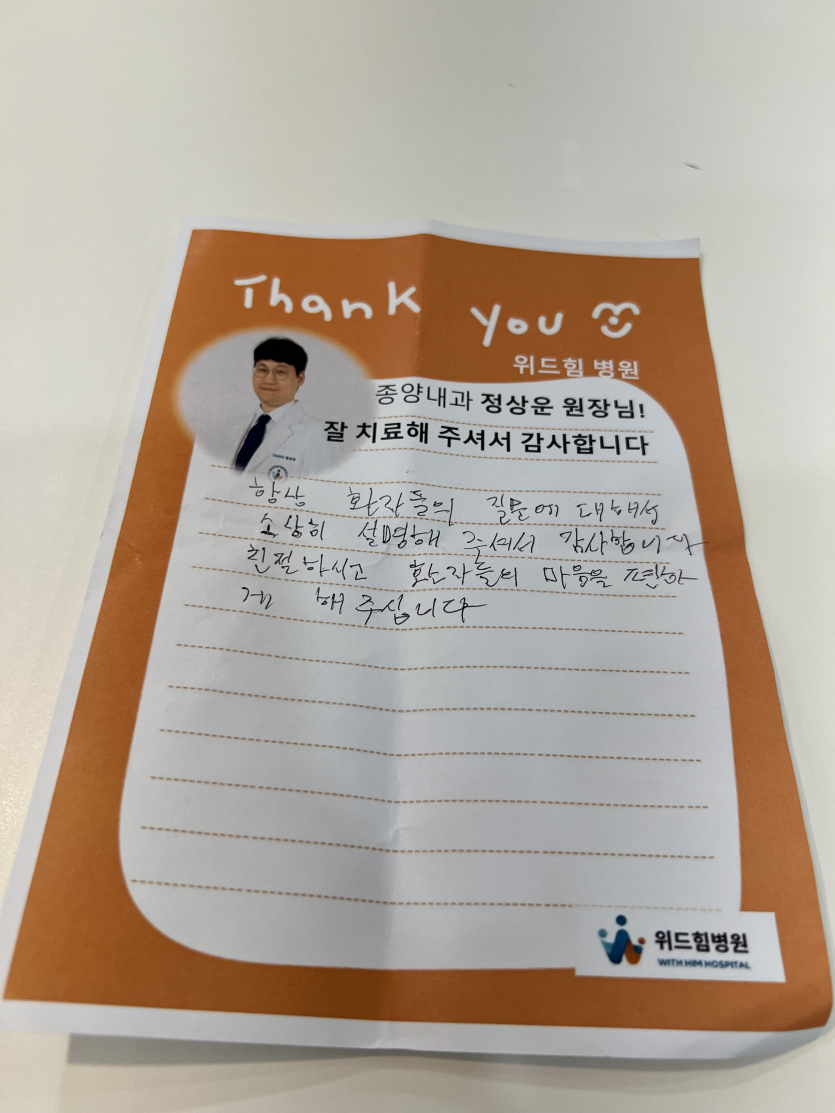 Thank you
위드힘 병원
종양내과 정상운 원장님!
잘 치료해 주셔서 감사합니다
항상 환자들의 질문에 대해서
소상히 설명해 주셔서 감사합니다
친절하시고 환자들의 마음을 편하
게 해 주십니다
위드힘병원
WITH HIM HOSPITAL